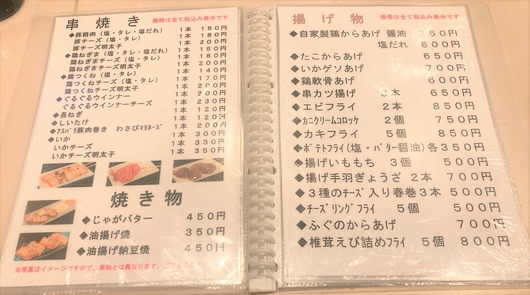 串焼き
価格は全て税込み表示です
◆豚精肉(塩・タレ・塩だれ) 1本 150円
豚チーズ(塩・タレ) 1本 180円
豚チーズ明太子 1本 200円
◆鶏ねぎま(塩・タレ・塩だれ) 1本
鶏ねぎまチーズ(塩・タレ) 1本
鶏ねぎまチーズ明太子 1本
◆鶏つくね(塩・タレ) 1本 140円
鶏つくねチーズ(塩・タレ) 1本 170円
鶏つくねチーズ明太子 1本
◆ぐるぐるウインナー 1本 200円
ぐるぐるウインナーチーズ 1本 230円
◆長ねぎ 1本 120円
◆しいたけ 1本
◆アスパラ豚肉巻き わさびマヨネーズ 1本
◆いか 1本
いかチーズ 1本
いかチーズ明太子 1本
焼き物
◆じゃがバター 450円
◆油揚げ焼 350円
◆油揚げ納豆焼 450円
※写真はイメージですので、実物とは異なります。
揚げ物
価格は全て税込み表示です
◆自家製鶏からあげ 醤油 750円
塩だれ 800円
◆たこからあげ 650円
◆いかゲソあげ 700円
◆鶏軟骨あげ 600円
◆串カツ揚げ 3本 650円
◆エビフライ 2本 850円
◆カニクリームコロッケ 2個 600円
◆カキフライ 5個 750円
◆ポテトフライ(塩・バター醤油)各350円
◆揚げいももち 3個 500円
◆揚げ手羽ぎょうざ 2本 700円
◆3種のチーズ入り春巻3本 500円
◆チーズリングフライ 5個 500円
◆ふぐのからあげ 700円
◆椎茸えび詰めフライ 5個 800円